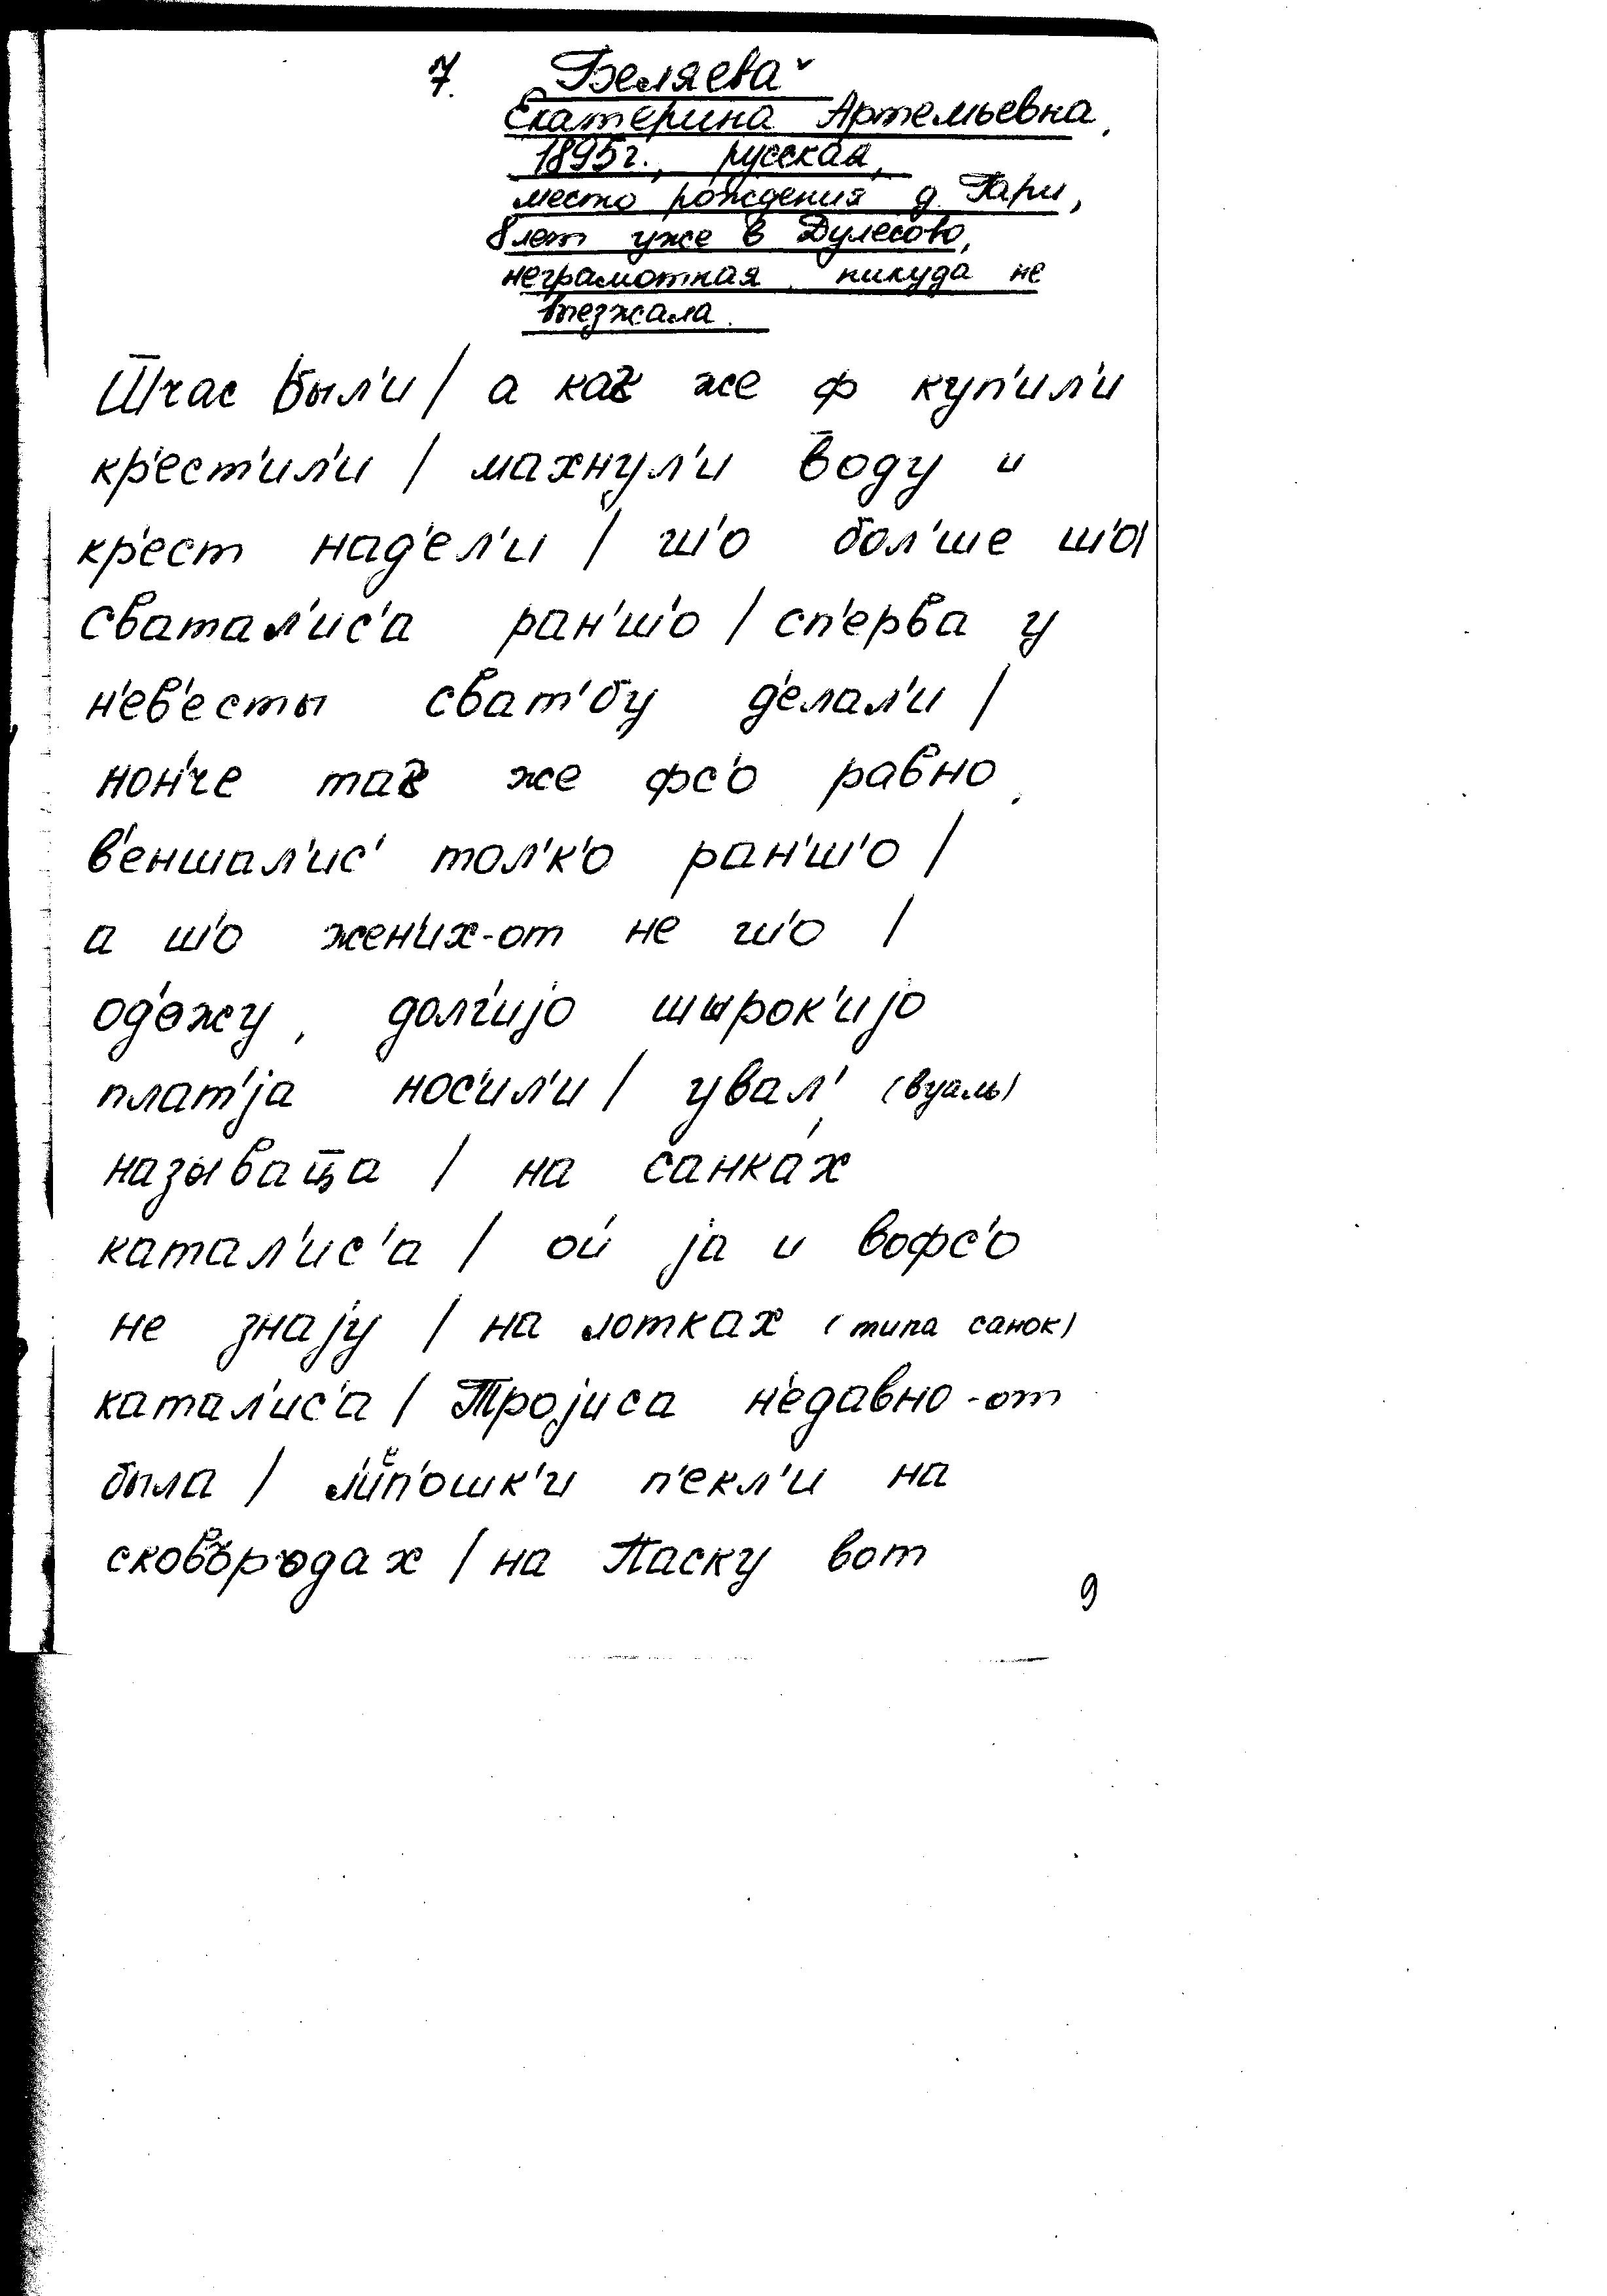 7. Беляева
Екатерина Артемьевна,
1895г., русская,
место рождения д. Гари,
8 лет уже в Дулесово,
неграмотная, никуда не
выезжала.
Ш̅час был'и / а каг же ф куп'ил'и
кр'ест'ил'и / махнул'и в̅оду и
кр'ест над'ел'и / ш'о бол'ше ш'о/
сватал'ис'а ран'ш'о / сп'ерва у
н'ев'есты сват'бу д'елал'и /
нон'че таг же фс'о равно,
в'еншал'ис' тол'к'о ран'ш'о /
а ш'о жен'их-от не ш'о /
од'ожу, долг'иjо шырок'иjо
плат'jа нос'ил'и / увал' (вуаль)
называц̅а / на санка́х
катал'ис'а / ой jа и вофс'о
не знаjу / на лотках (типа санок)
катал'ис'а / Троjиса н'едавно-от
была / л'иᵉп'ошк'и п'екл'и на
сковъръдах / на Паску вот
9